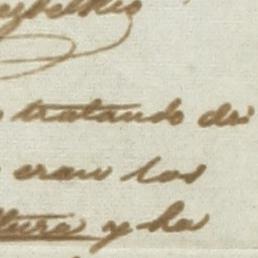 tratando de
eran los
ltura y ha